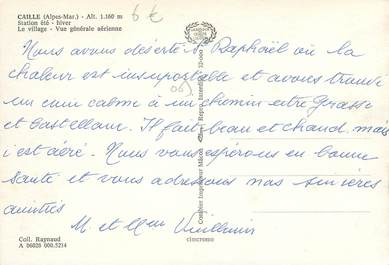 CAILLE (Alpes-Mar.) - Alt. 1.160 m
Station été - hiver
Le village - Vue générale aérienne
6 €
Nous avons déserté St Raphaël où la
chaleur est insuportable et avons trouvé
un coin calme à mi chemin entre Grasse
(06)
et Castellane. Il fait beau et chaud, mais
c'est aéré. Nous vous espérons en bonne
santé et vous adressons nos sincères
amitiés
M. et Mme Vuillemin
Coll. Raynaud
A 06028 000.5214
cimcrome
Combier Imprimeur Mâcon